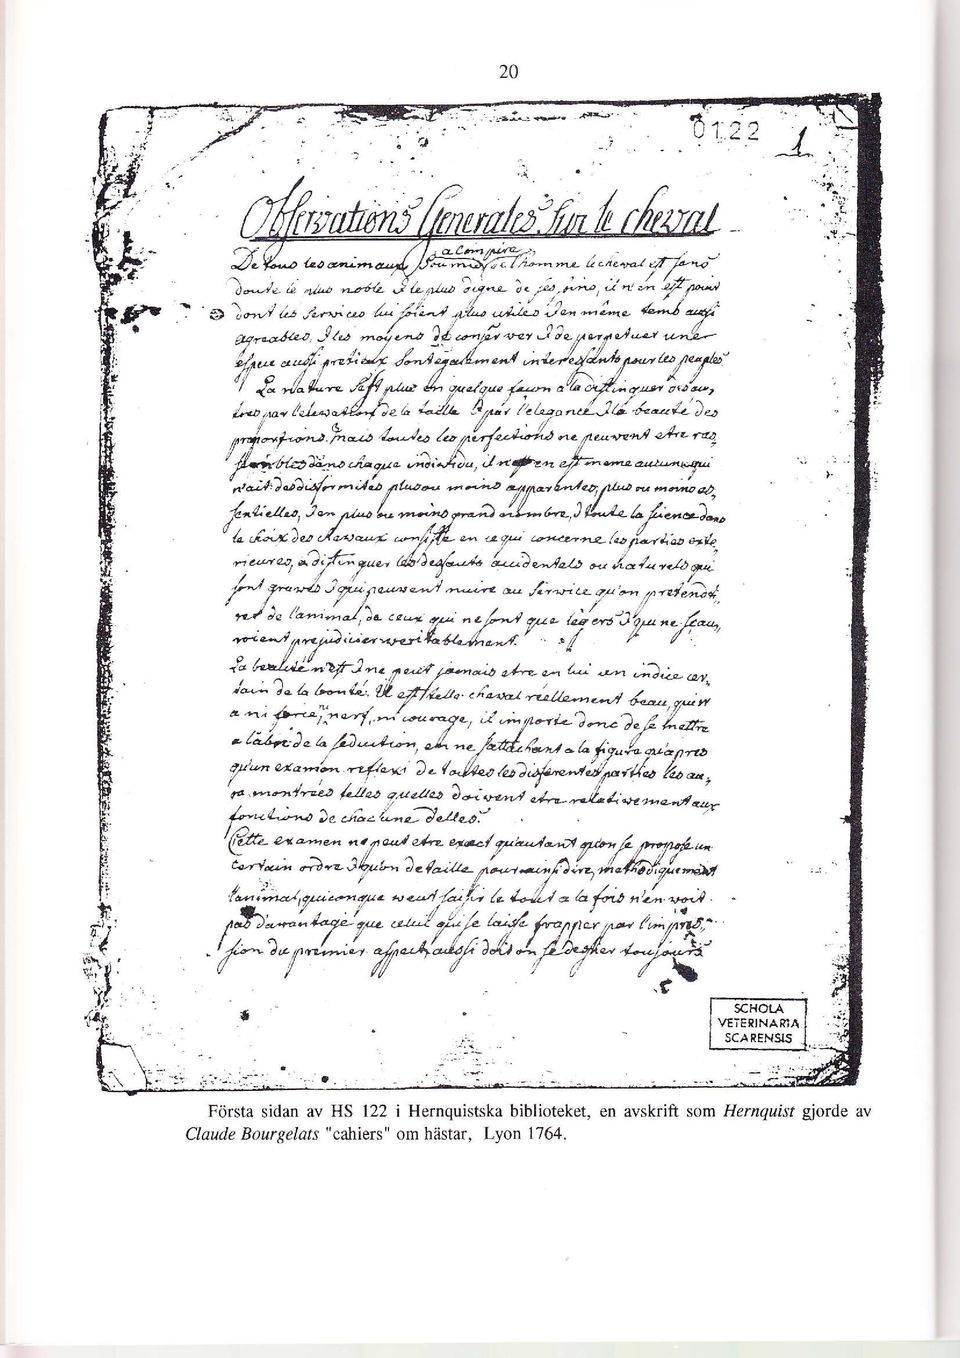 20
0122
1
Observations Generales sur le cheval
a Compire
De tous les animaux soumis de l'homme le cheval est sans
doute le plus noble & le plus digne de ses soins, il n'en est point
dont les services lui soient plus utiles & en même tems aussi
agreables. & les moyens de conserver & de perpetuer une
espece aussi pretieux sont également interessants pour les peuples
La nature s'est plue en quelque façon a la distinguer des au,
tres par l'elevation de la taille & par l'elegance & la beauté des
proportions. mais toutes les perfections ne peuvent etre ras,
semblées dans chaque individu, il n'en est meme aucun qui
n'ait des difformités plus ou moins apparentes, plus ou moins es,
sentielles, & en plus ou moins grand nombre, & toute la science dans
le choix des chevaux consiste en ce qui concerne les parties exte,
rieures, a distinguer les deffauts accidentels ou naturels qui
sont graves & qui peuvent nuire au service qu'on pretend
de l'animal, de ceux qui ne sont que legers & qui ne sçau,
roient prejudicier veritablement.
La beauté n'est & ne peut jamais etre en lui un indice cer,
tain de la bonté. Il est telle cheval réellement beau, qui n'
a ni force, ni nerf, ni courage, il importe donc de se mettre
a l'abri de la seduction, en ne s'attachant a la figure qu'apres
qu'un examen reflexi de toutes les differentes parties les au,
ra montrées telles quelles doivent etre relativement aux
fonctions de chacune delles.
Cette examen ne peut etre exact qu'autant qu'on se propose un
certain ordre & qu'on detaille pour ainsi dire, methodiquement
l'animal, quiconque veut saisir le tout a la fois n'en voit
pas davantage que celui qui se laisse frapper par l'impres,
sion du premier aspect, aussi doit on se defier toujours
SCHOLA
VETERINARIA
SCARENSIS
Första sidan av HS 122 i Hernquistska biblioteket, en avskrift som Hernquist gjorde av
Claude Bourgelats "cahiers" om hästar, Lyon 1764.